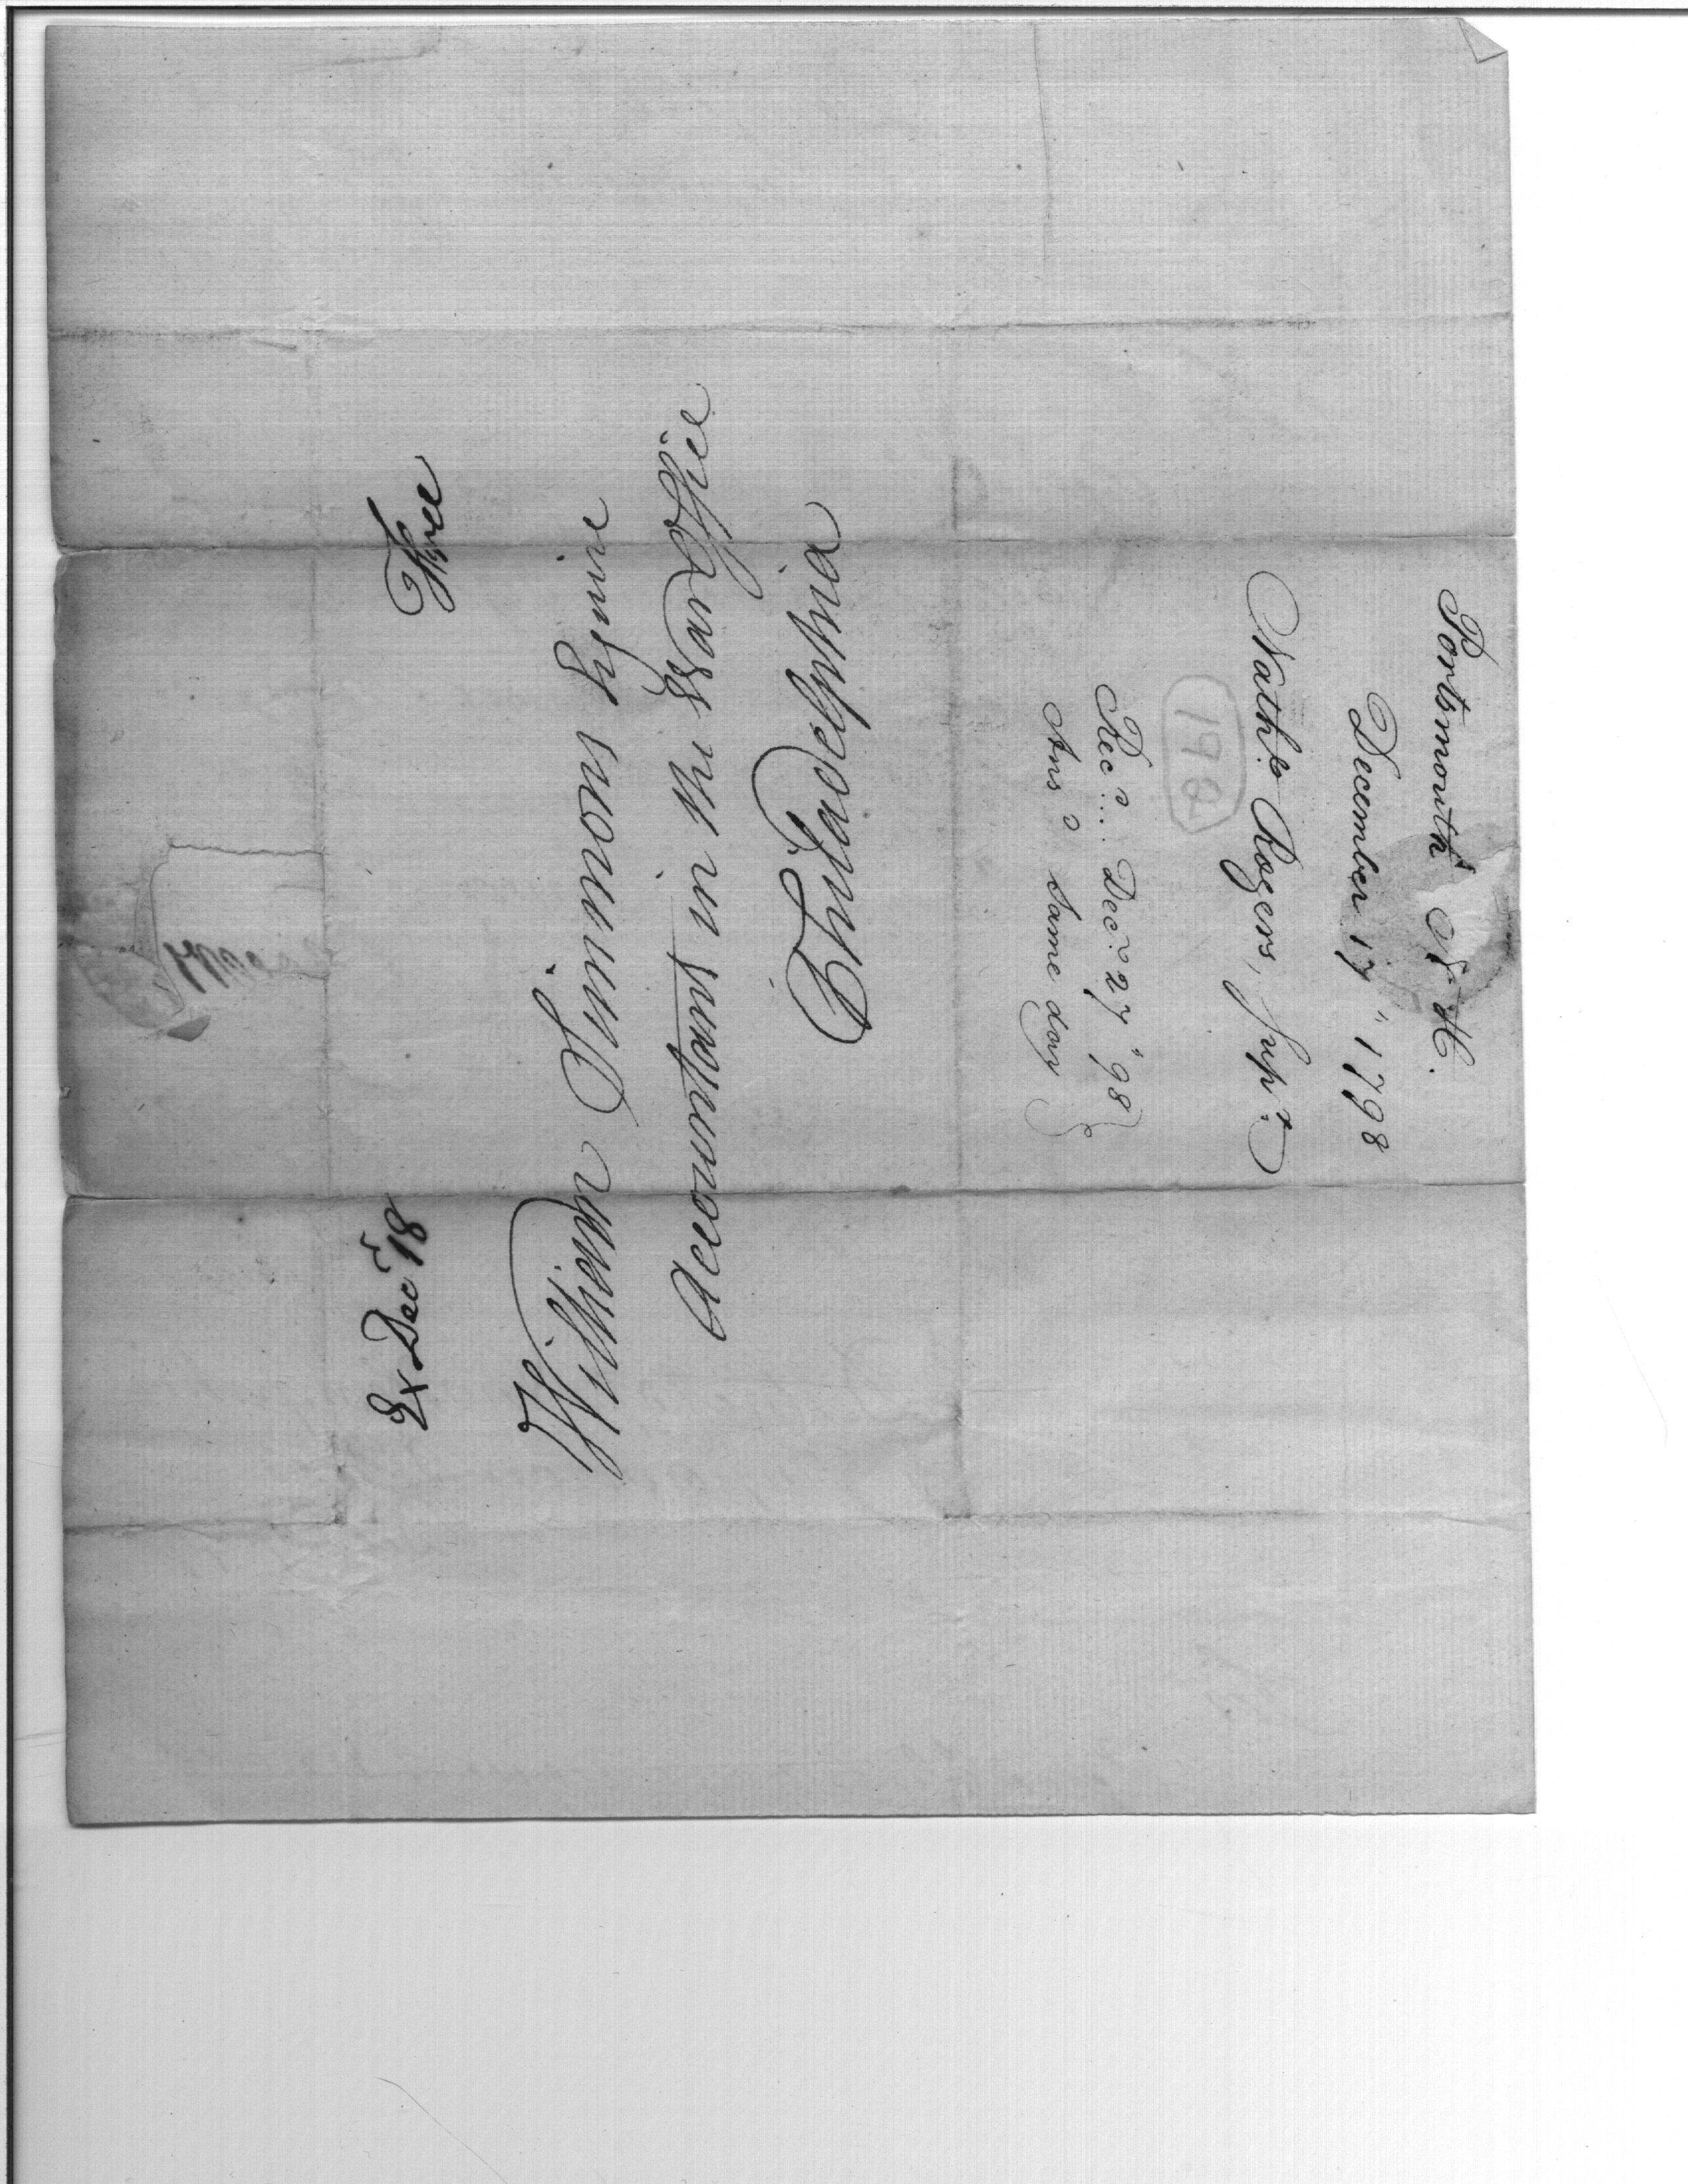 Free
Ex Decr 18
William Simmons Esquire
Accountant in the War Office
Philadelphia
Portsmouth N. H.
December 17" 1798
Nathl Rogers, Supr.
192
Recd.. Decr. 27" 98
Ansd same day